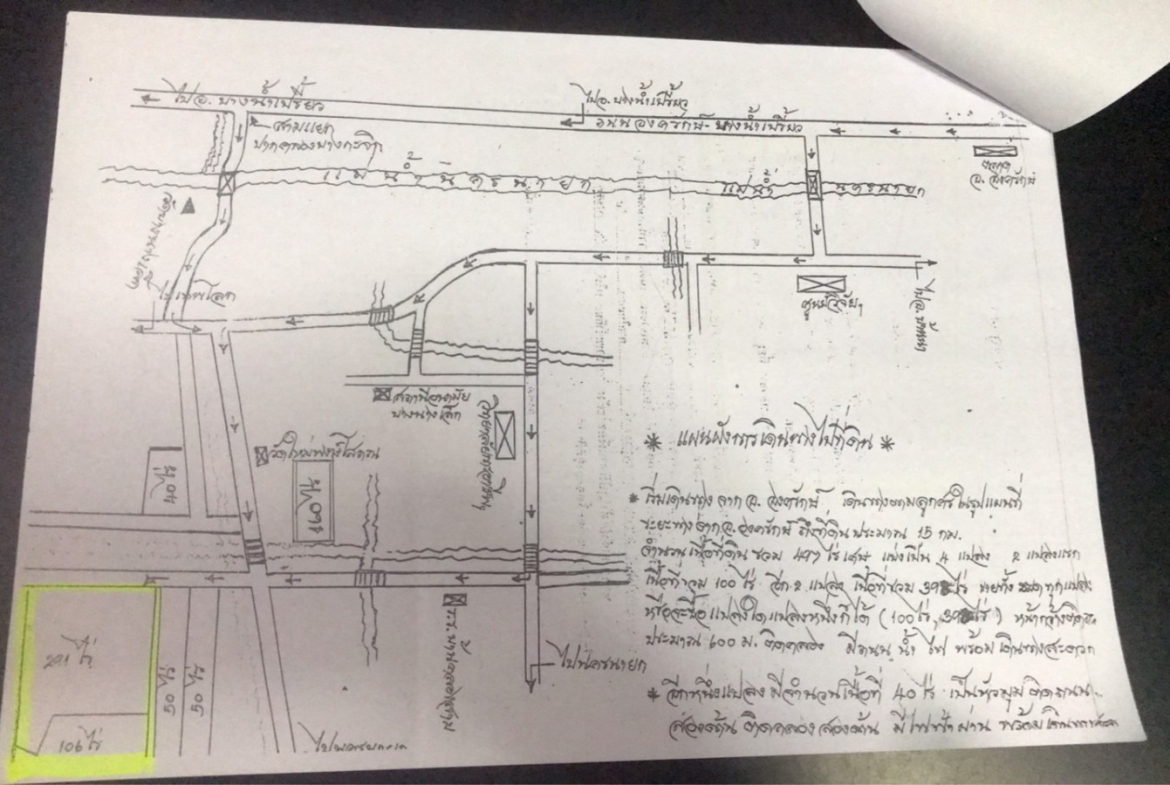 ไปอ. บางน้ำเปรี้ยว
ไปอ. บางน้ำเปรี้ยว
ถนนองครักษ์-บางน้ำเปรี้ยว
สามแยก
ปากคลองบางกะจิก
อ. องครักษ์
แม่น้ำนครนายก
แม่น้ำ นครนายก
ศูนย์วิจัยฯ
ไปอ. บ้านนา
สถานีอนามัย
40 ไร่
160 ไร่
* แผนผังการเดินทางไปที่ดิน *
* เริ่มเดินทาง จาก อ. องครักษ์ เดินทางตามลูกศรในรูปแผนที่
ระยะทางจาก อ. องครักษ์ ถึงที่ดิน ประมาณ 15 กม.
จำนวนเนื้อที่ดิน รวม 497 ไร่เศษ แบ่งเป็น 4 แปลง 2 แปลงแรก
เนื้อที่รวม 100 ไร่ อีก 2 แปลง เนื้อที่รวม ขายทั้งหมดทุกแปลง
หรือจะซื้อแปลงใดแปลงหนึ่งก็ได้ (100 ไร่, หน้ากว้างติด
ประมาณ 600 ม. ติดคลอง มีถนน น้ำ ไฟ พร้อม เดินทางสะดวก
* อีกหนึ่งแปลง มีจำนวนเนื้อที่ 40 ไร่ เป็นหัวมุม ติดถนน
สองด้าน ติดคลองสองด้าน มีไฟฟ้าผ่าน พร้อม
291 ไร่
50 ไร่
50 ไร่
106 ไร่
ไปนครนายก